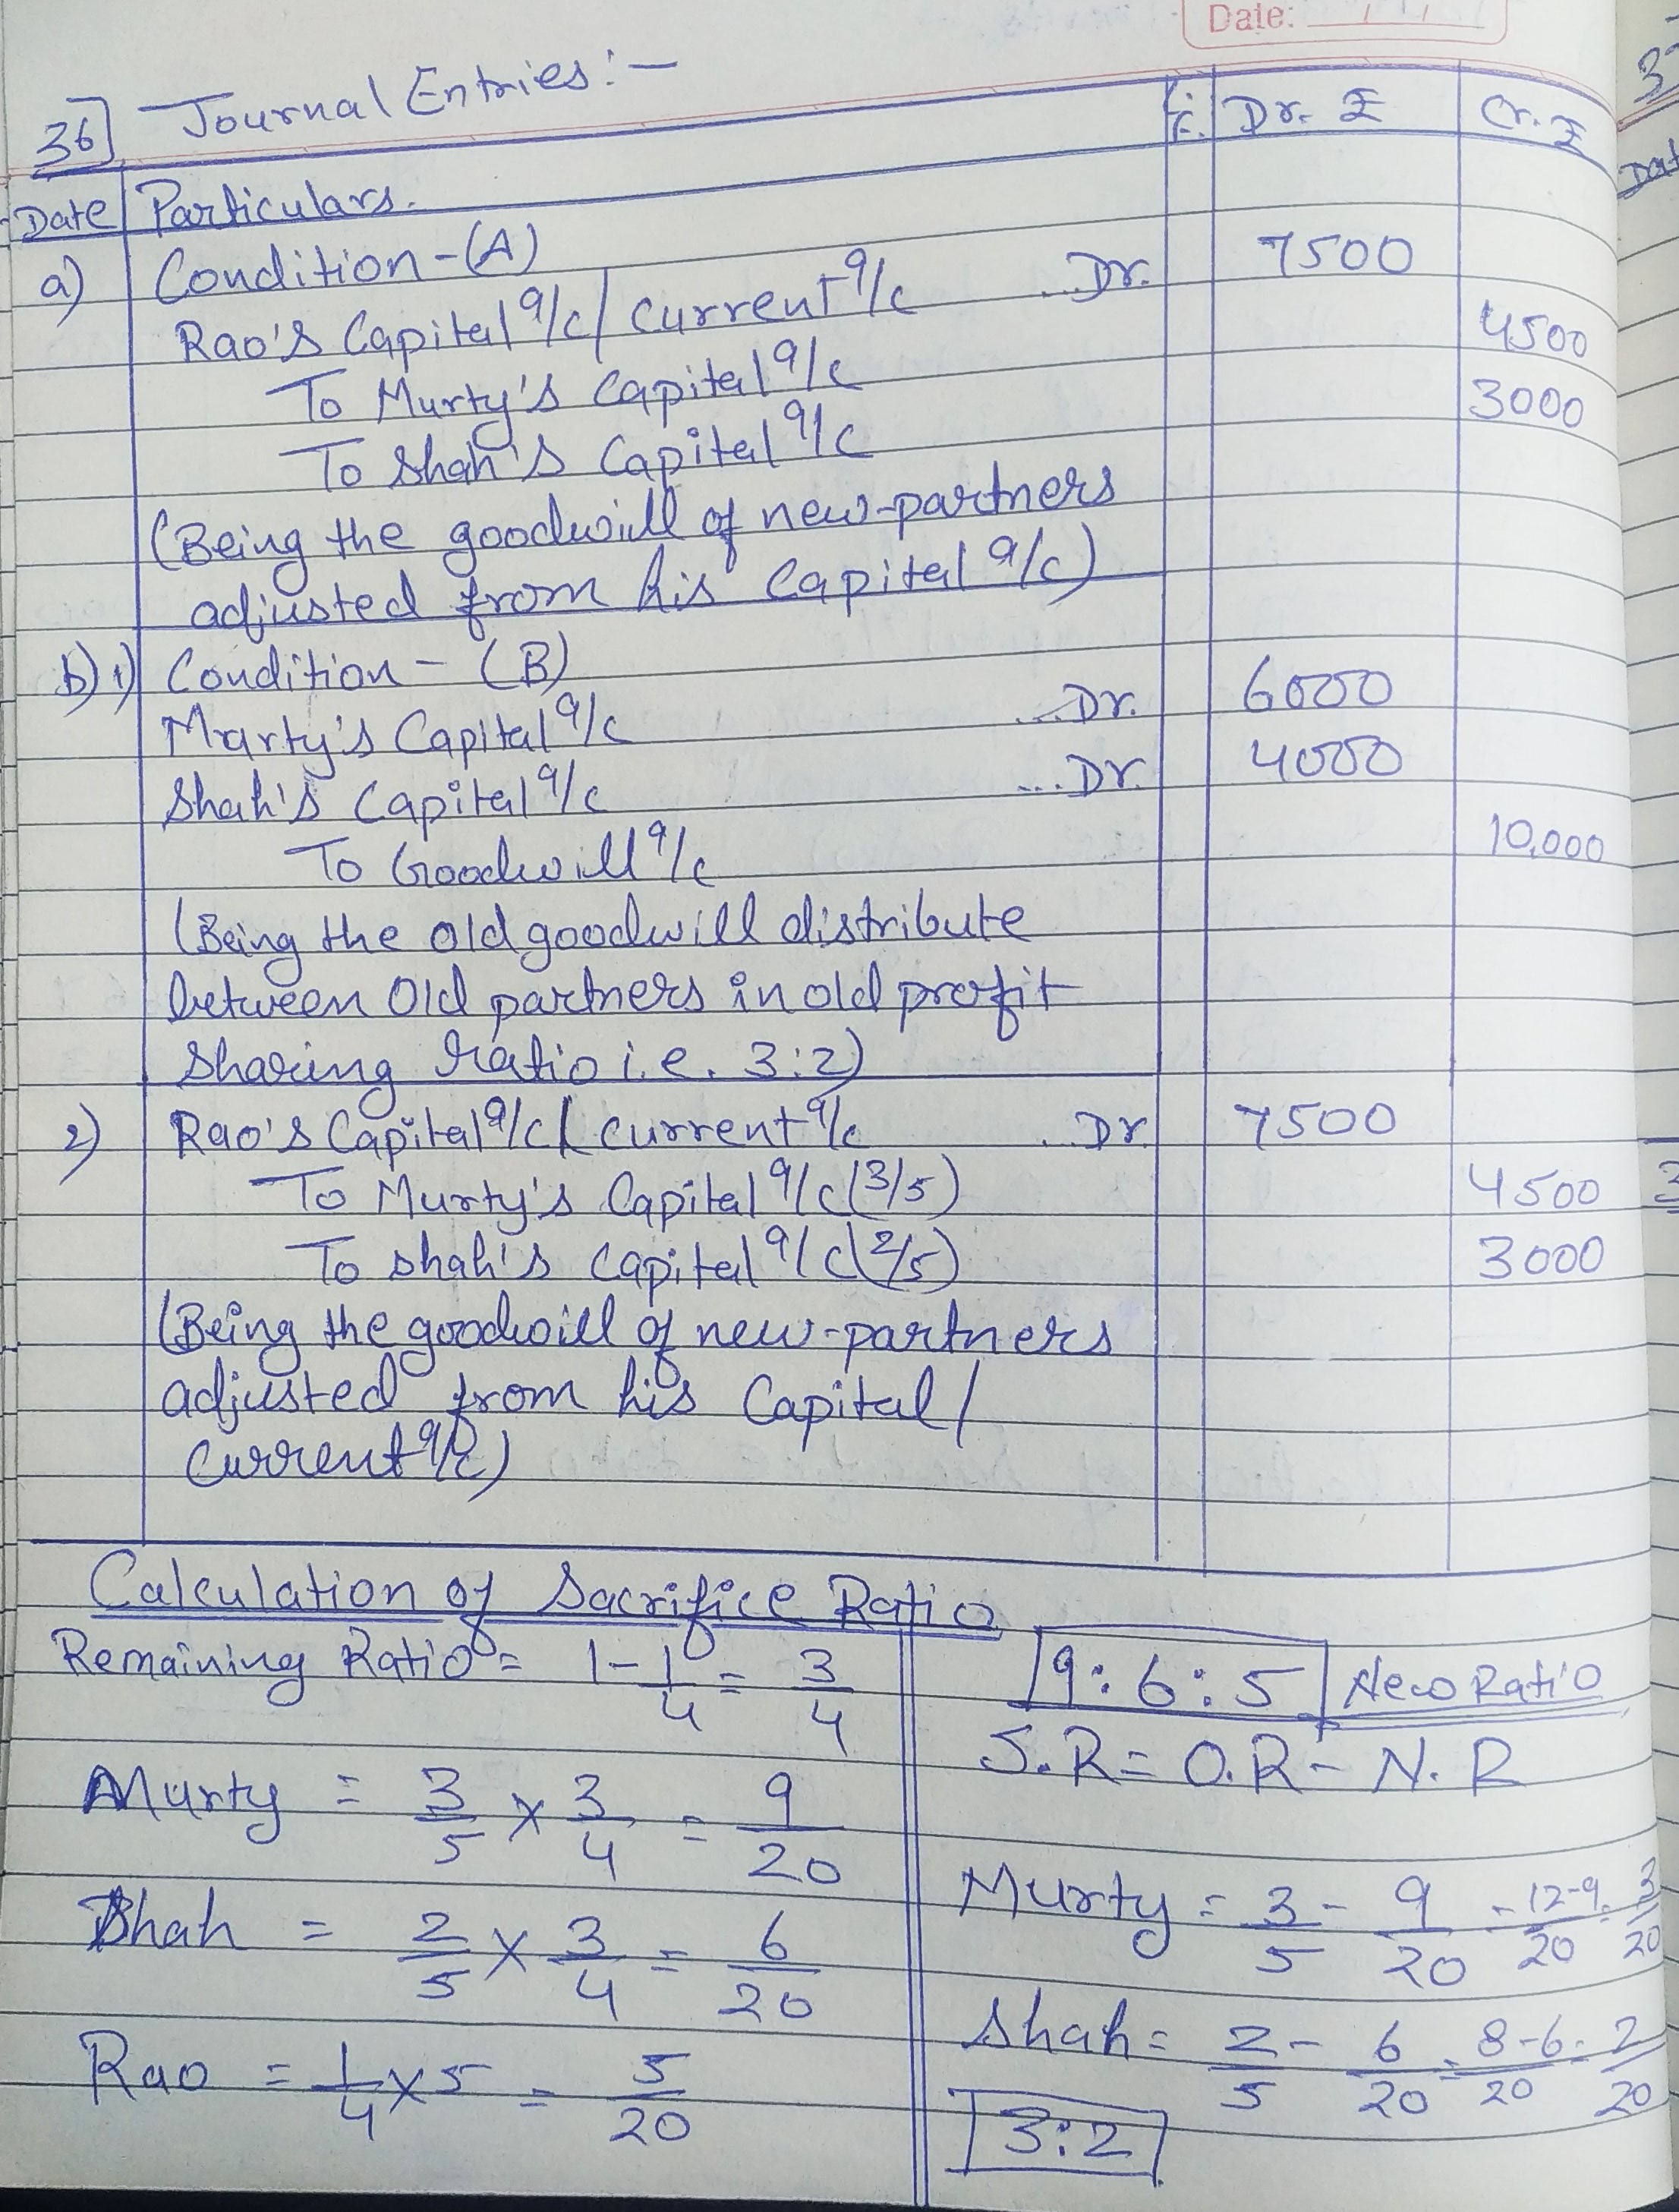 Date:
36] Journal Entries:-
Date Particulars. L.F. Dr. ₹ Cr. ₹
a) Condition-(A)
Rao's Capital a/c/ Current a/c ...Dr. 7500
To Murty's Capital a/c 4500
To Shah's Capital a/c 3000
(Being the goodwill of new-partners
adjusted from his Capital a/c)
b) 1) Condition - (B)
Marty's Capital a/c ...Dr. 6000
Shah's Capital a/c ...Dr. 4000
To Goodwill a/c 10,000
(Being the old goodwill distribute
between Old partners in old profit
sharing ratio i.e. 3:2)
2) Rao's Capital a/c/ Current a/c ..Dr 7500
To Murty's Capital a/c (3/5) 4500
To Shah's Capital a/c (2/5) 3000
(Being the goodwill of new-partners
adjusted from his Capital/
Current a/c)
Calculation of Sacrifice Ratio
Remaining Ratio = 1-1/4 = 3/4
Murty = 3/5 × 3/4 = 9/20
Shah = 2/5 × 3/4 = 6/20
Rao = 1/4 × 5 = 5/20
9:6:5 New Ratio
S.R = O.R - N.R
Murty = 3/5 - 9/20 = 12-9/20 = 3/20
Shah = 2/5 - 6/20 = 8-6/20 = 2/20
3:2